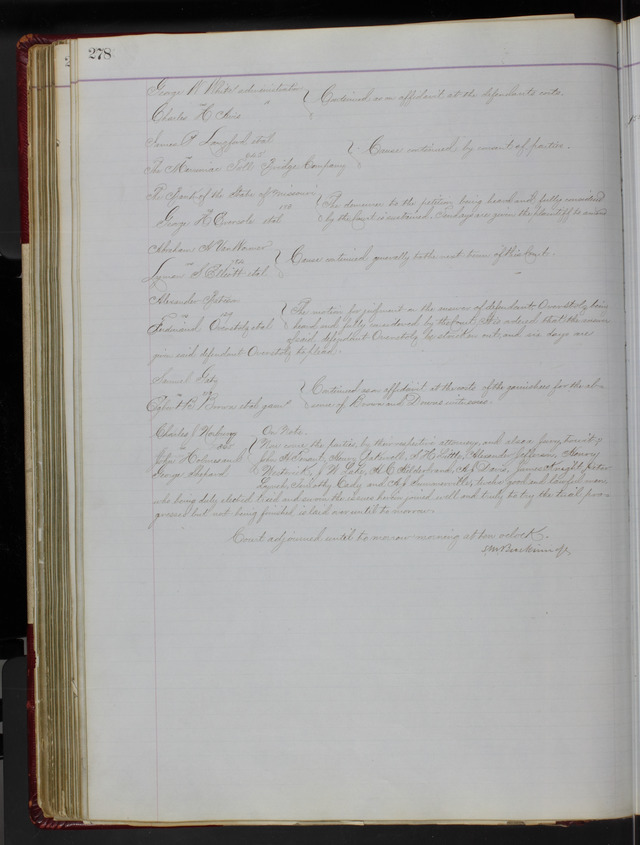 278
George W. White administrator
vs
Charles H
Continued as on affidavit at the defendants costs.
James P Langford et al
vs
The Toll Bridge Company
Cause continued by consent of parties.
The Bank of the State of Missouri
vs
George R et al
The demurrer to the petition being heard and fully considered
by the Court is sustained. days are given the plaintiff to amend
Abraham
vs
Lyman S Elliott et al
Cause continued generally to the next term of this Court.
Alexander
vs
Ferdinand Overstolz et al
The motion for judgment on the answer of defendant Overstolz being
heard and fully considered by the Court. It is ordered that the answer
of said defendant Overstolz be stricken out, and six days are
given said defendant Overstolz to plead.
Samuel Gaty
vs
Egbert B Brown et al
Continued as on affidavit at the costs of the garnishees for the ab-
sence of Brown and Downs witnesses.
Charles J
vs
George Shepard
On Note.
Now come the parties, by their respective attorneys, and also a jury, to wit;
John H Henry S. H. Little, Alexander Jefferson, Henry
J W Luke, H. C. Hilderbrand, A J Davis, James Knight, Peter
Lynch, Timothy Cady and twelve good and lawful men,
who being duly elected tried and sworn the issues herein joined well and truly to try the trial pro-
gresses but not being finished is laid over until to morrow.
Court adjourned until to morrow morning at ten o'clock.